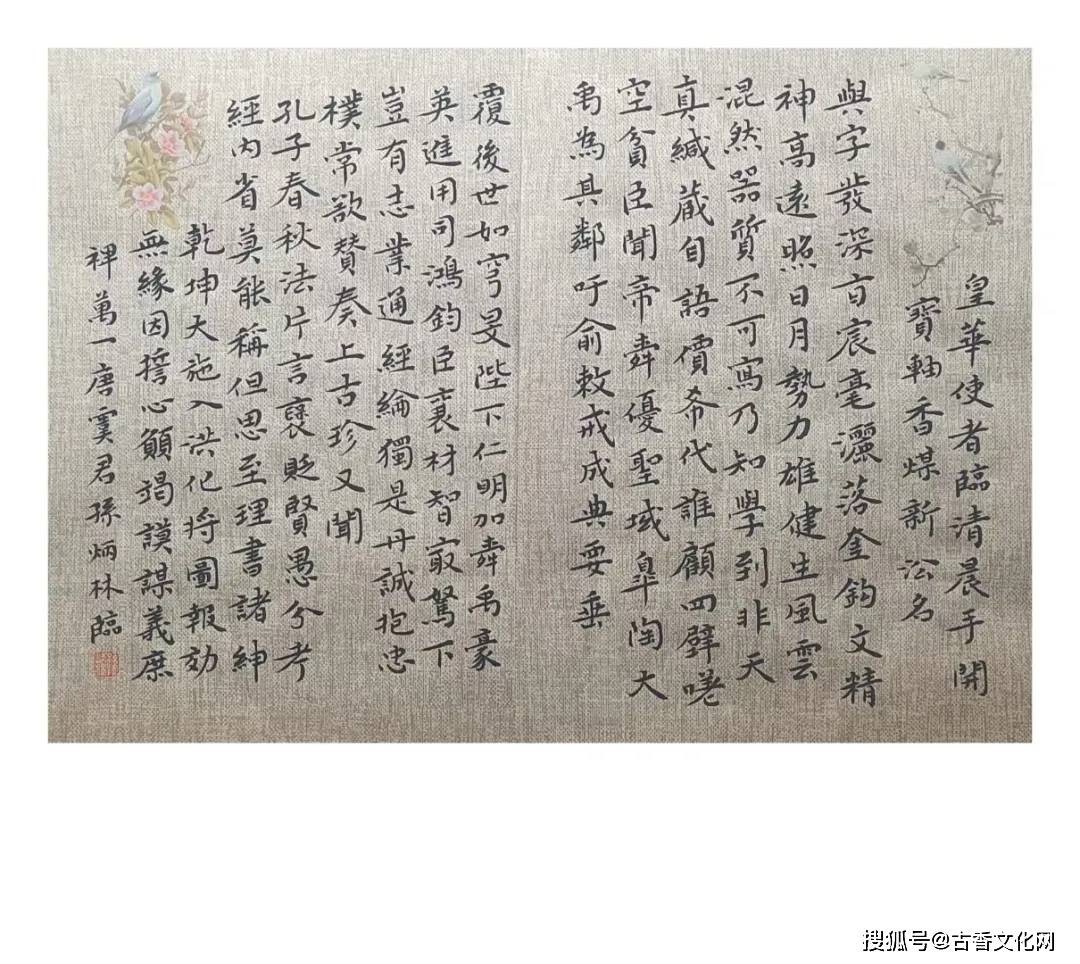 皇華使者臨清晨手開
寶軸香煤新 名
與字發深 宸毫灑落奎鈎文精
神高遠照日月勢力雄健生風雲
混然器質不可寫乃知學到非天
真緘蔵自語價希代誰顧四壁嗟
空貧臣聞帝舜優聖域臯陶大
禹為其鄰吁俞敕戒成典要垂
覆後世如穹旻陛下仁明加舜禹豪
英進用司鴻鈞臣襄材智㝡駑下
豈有志業通經綸獨是丹誠抱忠
樸常欲賛奏上古珍又聞
孔子春秋法片言襃貶賢愚分考
經內省莫能稱但思至理書諸紳
乾坤大施入洪化将圖報効
無緣因誓心願竭謨謀義庶
裨萬一唐虞君孫炳林臨
搜狐号@古香文化网